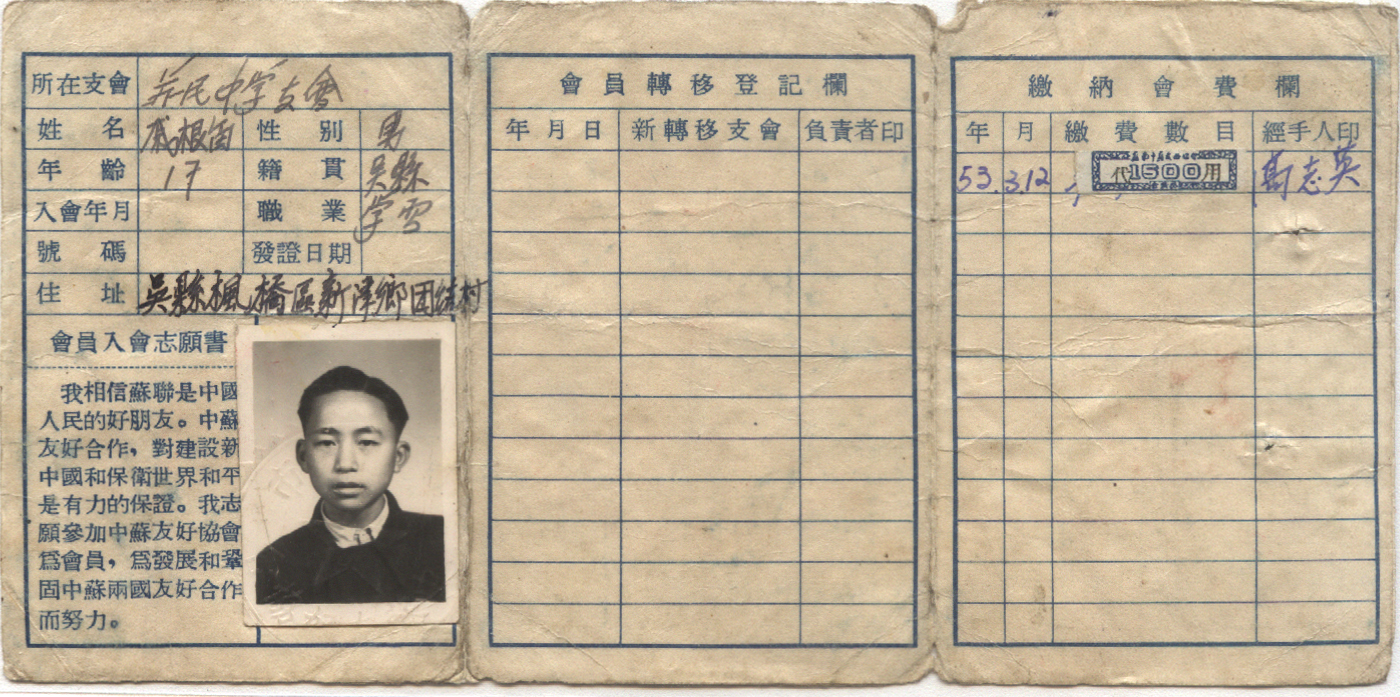 所在支會 中学支會
姓名 根 性別 男
年齡 17 籍貫 吳縣
入會年月 職業 学
號碼 發證日期
住址 吳縣楓橋區新澤鄉团结村
會員入會志願書
我相信蘇聯是中國
人民的好朋友。中蘇
友好合作，對建設新
中國和保衛世界和平
是有力的保證。我志
願參加中蘇友好協會
爲會員，爲發展和鞏
固中蘇兩國友好合作
而努力。
會員轉移登記欄
年月日 新轉移支會 負責者印
繳納會費欄
年 月 繳費數目 經手人印
53.3.12 代1500用 高志英